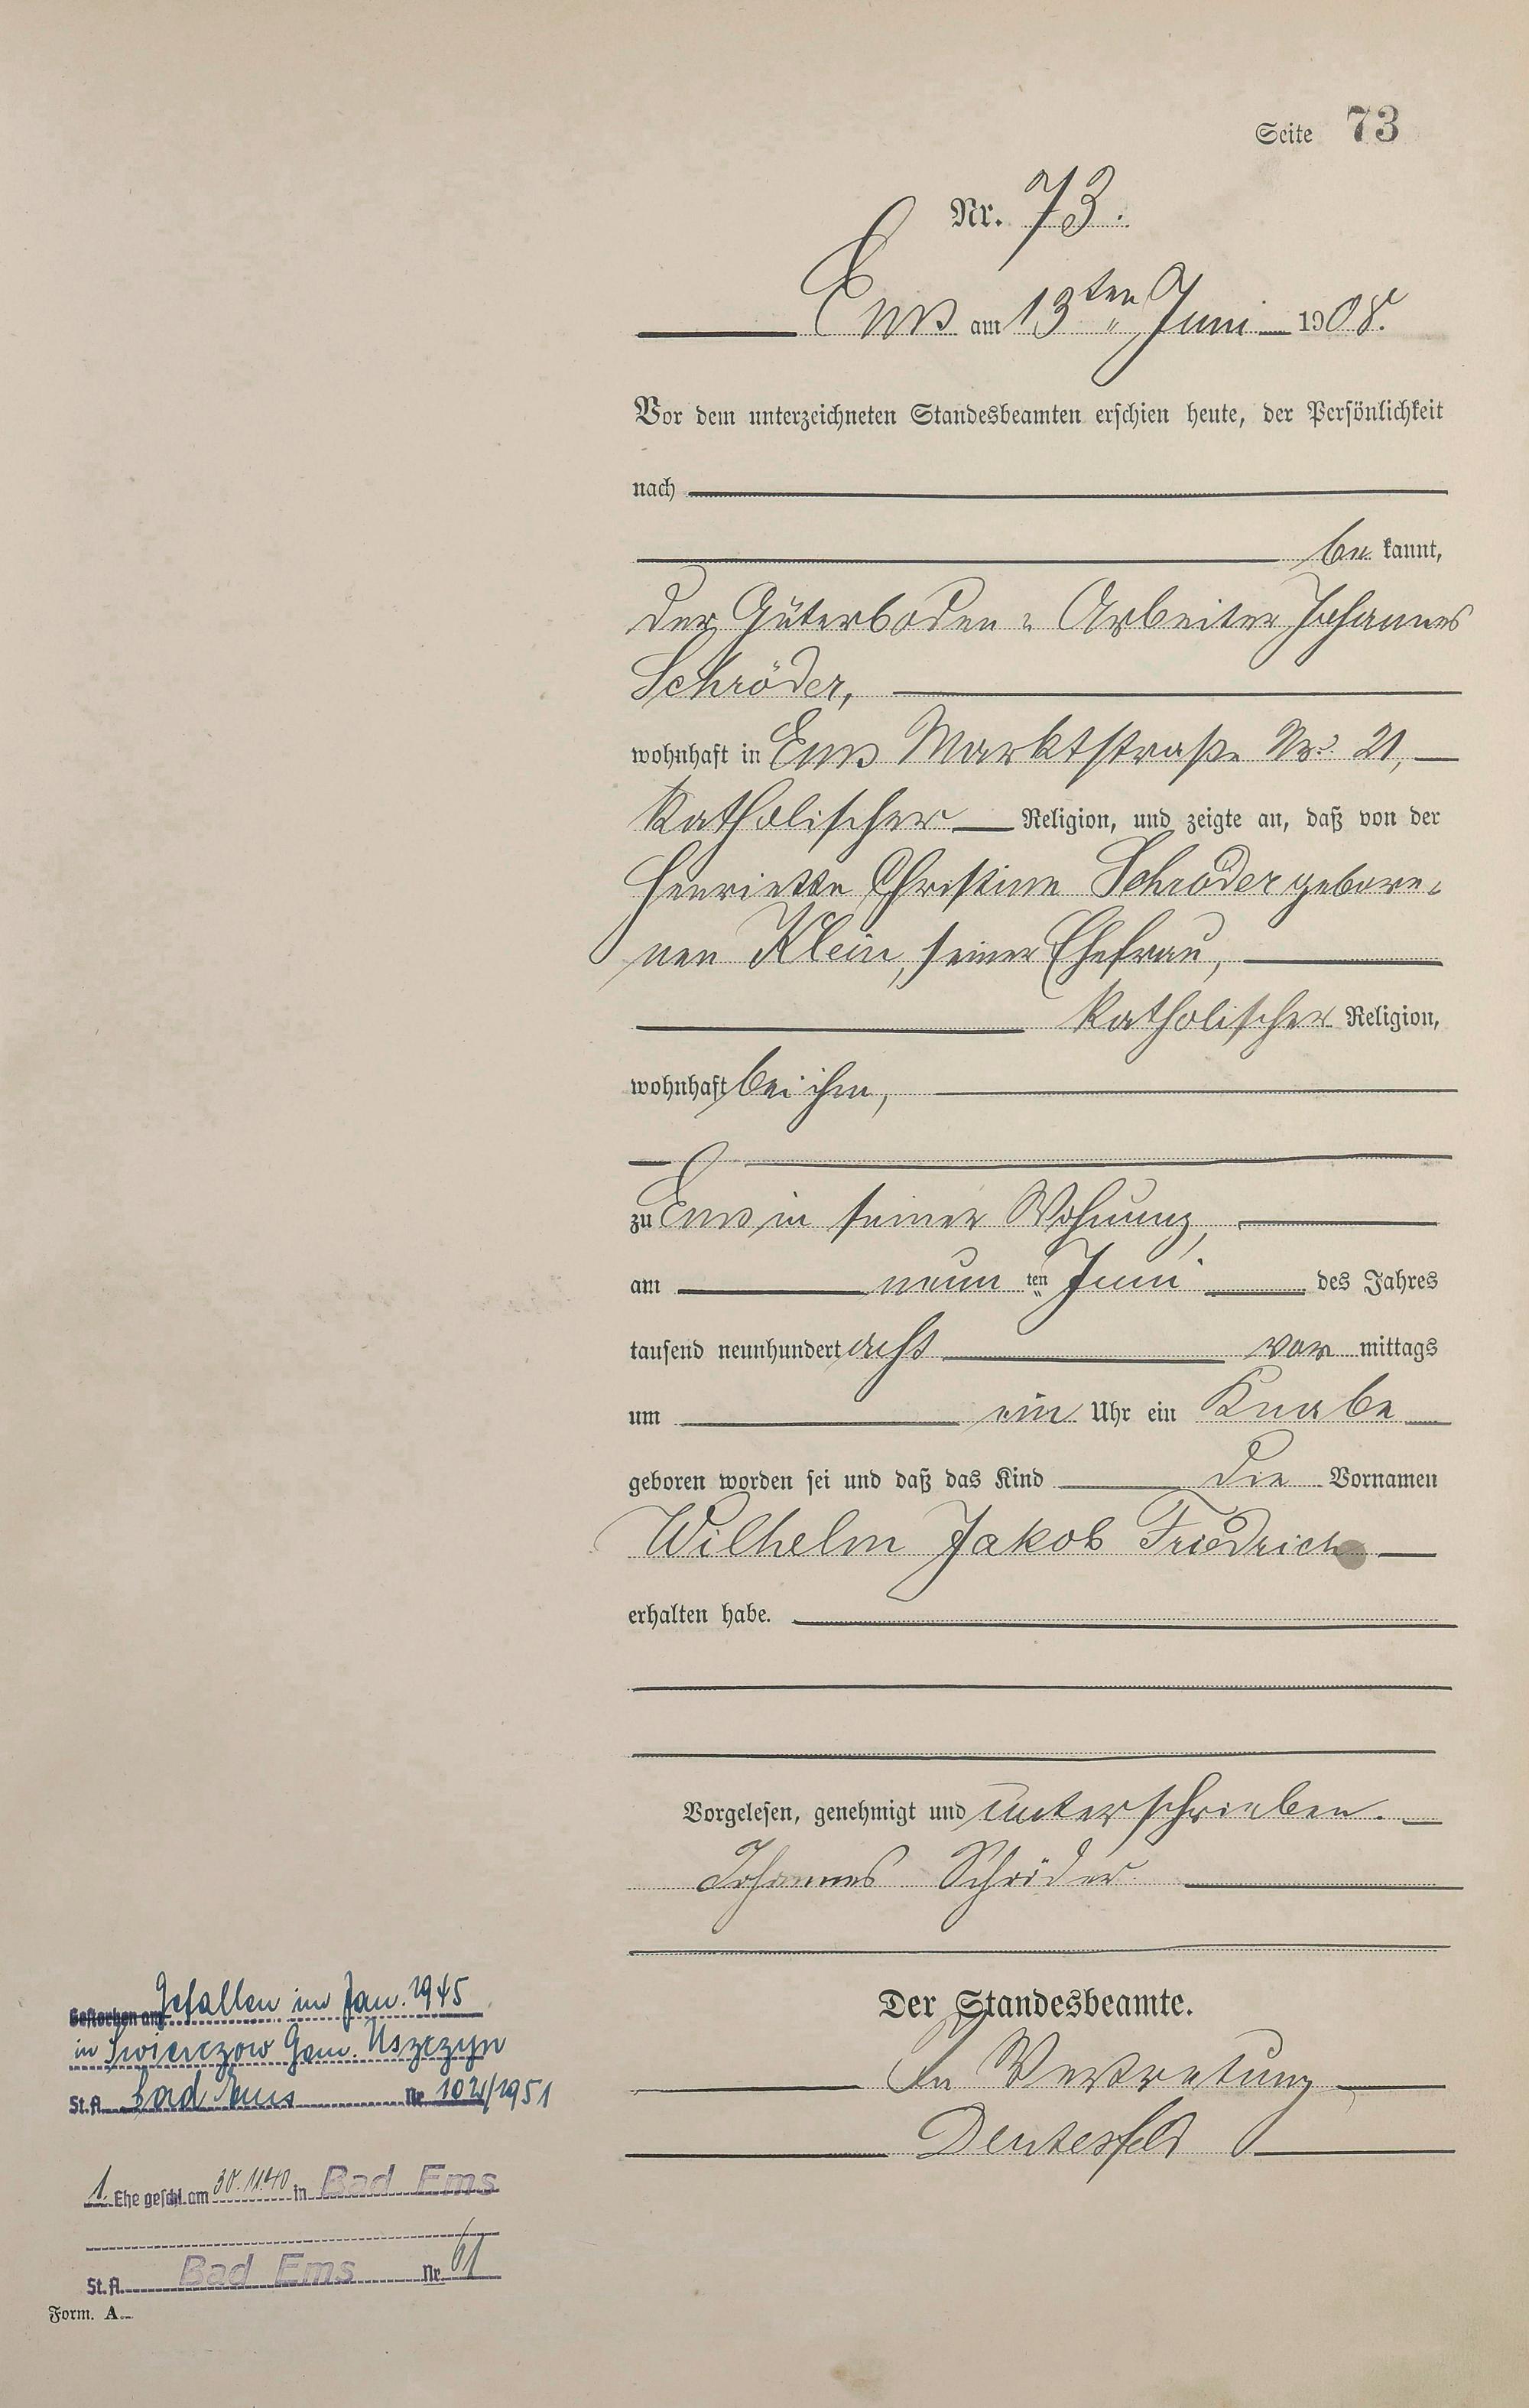 Seite 73
Nr. 73.
Ems am 13ten Juni 1908.
Vor dem unterzeichneten Standesbeamten erschien heute, der Persönlichkeit
nach
be kannt,
der Güterboden-Arbeiter Johannes
Schröder,
wohnhaft in Ems Marktstraße No. 21,
katholischer Religion, und zeigte an, daß von der
Henriette Christine Schröder gebore-
nen Klein, seiner Ehefrau,
katholischer Religion,
wohnhaft bei ihm,
zu Ems in seiner Wohnung,
am neun ten Juni des Jahres
tausend neunhundert acht vor mittags
um ein Uhr ein Knabe
geboren worden sei und daß das Kind die Vornamen
Wilhelm Jakob Friedrich
erhalten habe.
Vorgelesen, genehmigt und unterschrieben.
Johannes Schröder
Der Standesbeamte.
In Vertretung
Deutesfeld
Gestorben am Gefallen im Jan. 1945
in Swierczow Gem. Uszczyn
St.A. Bad Ems Nr. 102/1951
1. Ehe geschl. am 30.11.40 in Bad Ems
St.A. Bad Ems Nr. 61
Form. A.